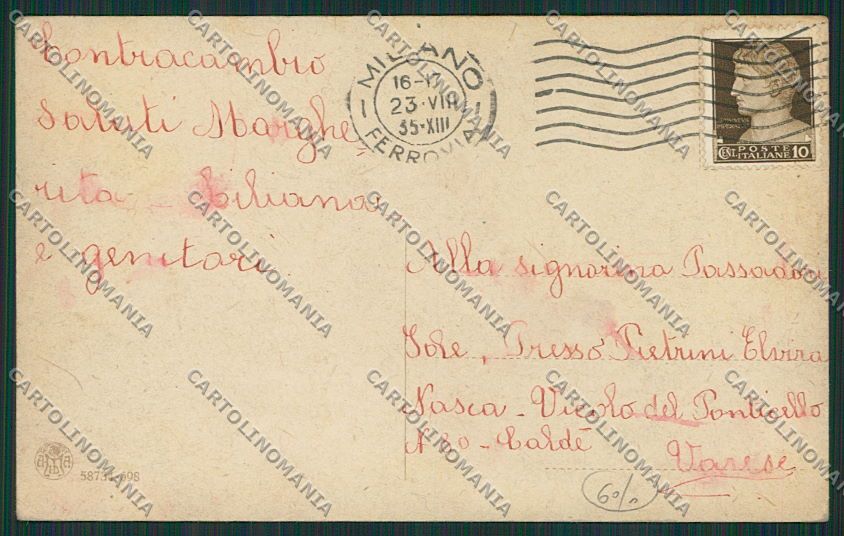 Contracambio
saluti Marghe=
rita - Liliana -
e genitori
MILANO
16-17
23·VIII
35-XIII
FERROVIA
POSTE
CENT. ITALIANE 10
Alla signorina Passadori
Iole, Presso Pietrini Elvira
Nasca - Vicolo del Ponticello
N 20 - Caldè
Varese
CARTOLINOMANIA